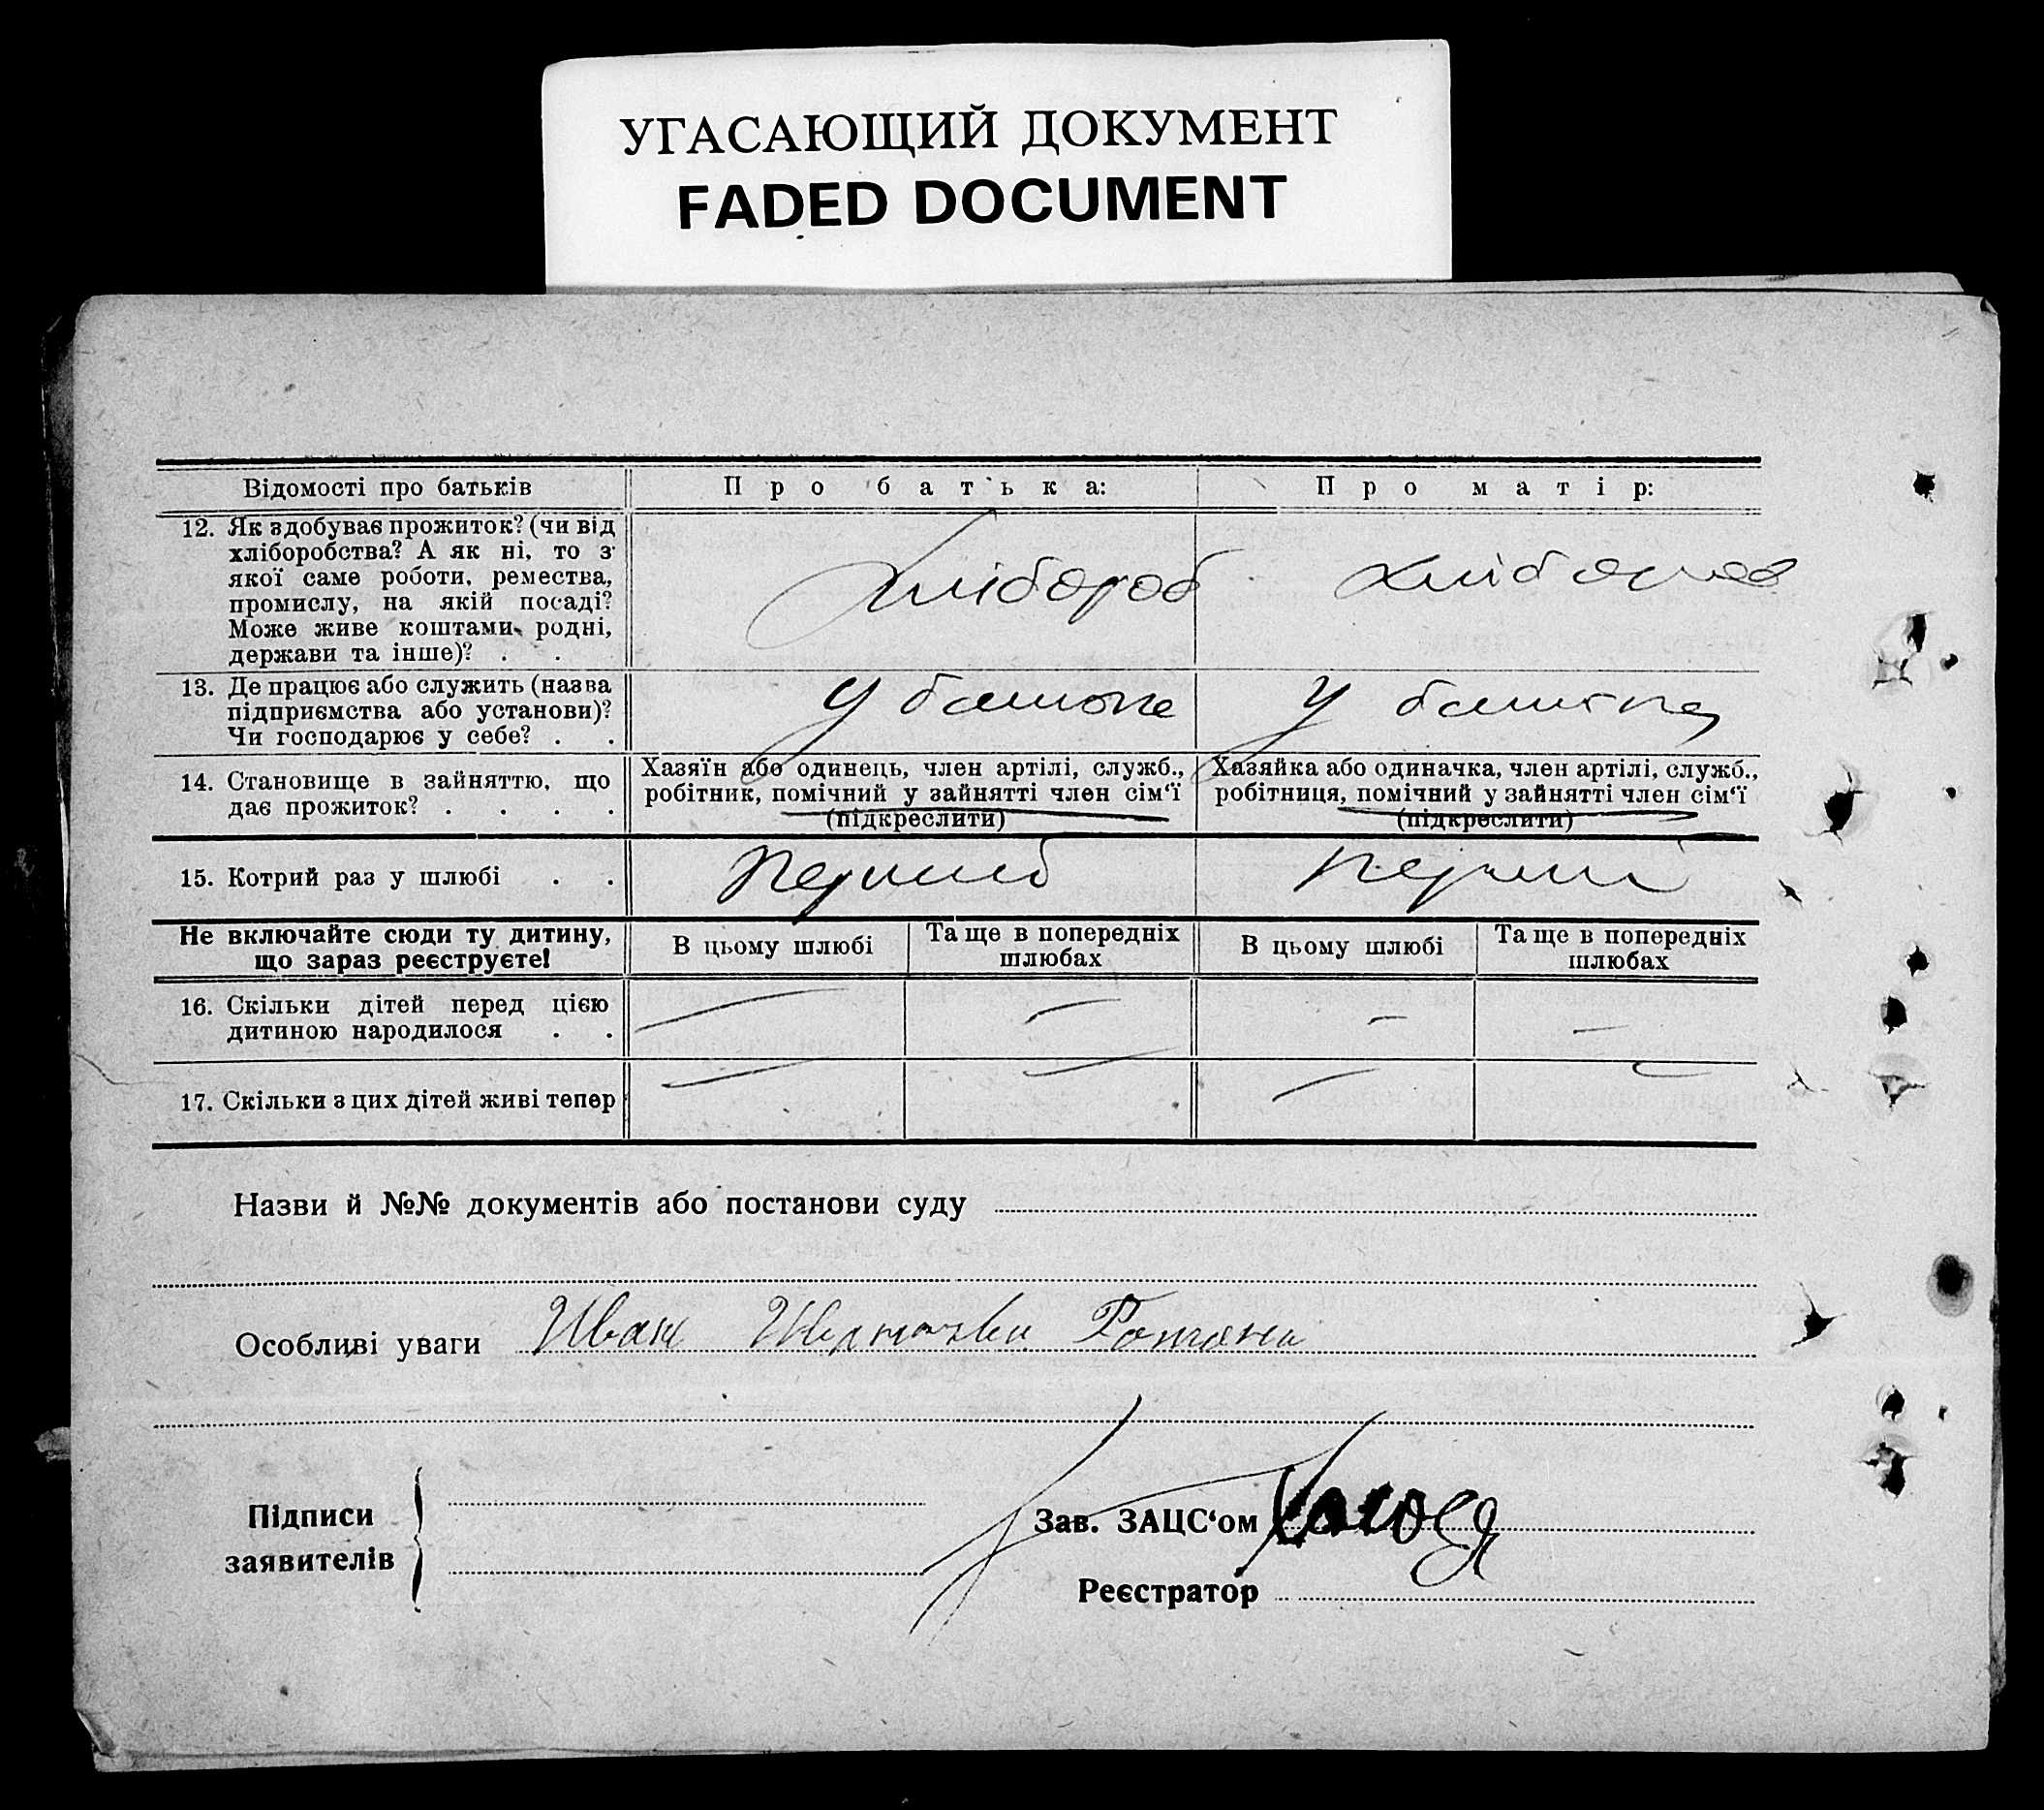 УГАСАЮЩИЙ ДОКУМЕНТ
FADED DOCUMENT
Відомості про батьків
Про батька:
Про матір:
12. Як здобуває прожиток? (чи від
хліборобства? А як ні, то з
якої саме роботи, ремества,
промислу, на якій посаді?
Може живе коштами родні,
держави та інше)? . .
Хлібороб
хлібороб
13. Де працює або служить (назва
підприємства або установи)?
Чи господарює у себе? . .
У батька
У батька
14. Становище в зайняттю, що
дає прожиток? . . . .
Хазяїн або одинець, член артілі, служб.,
робітник, помічний у зайнятті член сім‘ї
(підкреслити)
Хазяйка або одиначка, член артілі, служб.,
робітниця, помічний у зайнятті член сім‘ї
(підкреслити)
15. Котрий раз у шлюбі . .
перший
перший
Не включайте сюди ту дитину,
що зараз реєструєте!
В цьому шлюбі
Та ще в попередніх
шлюбах
В цьому шлюбі
Та ще в попередніх
шлюбах
16. Скільки дітей перед цією
дитиною народилося . .
— — — —
17. Скільки з цих дітей живі тепер
— — — —
Назви й №№ документів або постанови суду
Особливі уваги Иван
Підписи
заявителів
Зав. ЗАЦС‘ом
Реєстратор